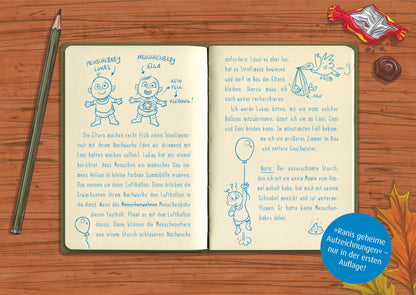 MENSCHENBABY
LUKAS
MENSCHENBABY
ELLA
KEIN
FELL
KLEDUNG!
Die Eltern machen recht früh einen Intelligenz-
test mit ihrem Nachwuchs (den wir dringend mit
Lasi hätten machen sollen). Lukas hat mir einmal
berichtet, dass Menschen ein magisches Gas na-
mens Helium in kleine farbige Gummibälle pumpen.
Das nennen sie dann: Luftballon. Dann drücken die
Erwachsenen ihrem Nachwuchs den Luftballon in
die Hand. Wenn das Menschenwelpen Menschenbabe
diesen festhält, fliegt es mit dem Luftballon
davon. Dann können die Menscheneltern
von einem Storch schlaueren Nachwuchs
anfordern. Lässt es aber los,
hat es Intelligenz bewiesen
und darf im Bau der Eltern
bleiben. Hierzu muss ich
noch weiter recherchieren.
Ich werde Lukas bitten, mir ein paar solcher
Ballons mitzubringen, damit ich sie an Lasi, Casi
und Gasi binden kann. Im allerbesten Fall bekom-
me ich ein größeres Zimmer im Bau
und nettere Geschwister.
Nota: Der unverschämte Storch,
den ich mit ein wenig Magie vom Him-
mel geholt habe, hat mich mit seinem
Schnabel gezwickt und ist weiterge-
flogen. Er hatte keine Menschen-
babys dabei.
»Ranis geheime
Aufzeichnungen« –
nur in der ersten
Auflage!